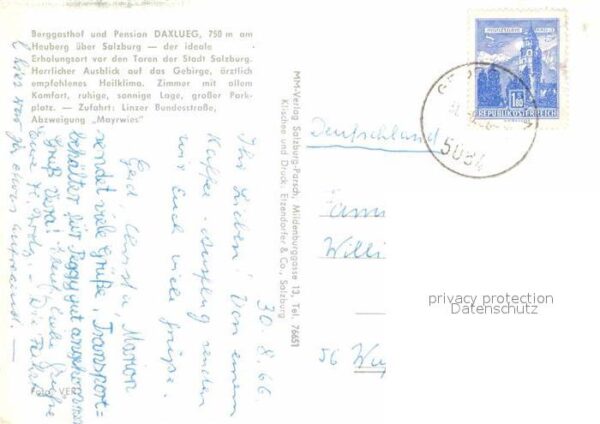 Berggasthof und Pension DAXLUEG, 750 m am
Heuberg über Salzburg — der ideale
Erholungsort vor den Toren der Stadt Salzburg.
Herrlicher Ausblick auf das Gebirge, ärztlich
empfohlenes Heilklima. Zimmer mit allem
Komfort, ruhige, sonnige Lage, großer Park-
platz. — Zufahrt: Linzer Bundesstraße,
Abzweigung „Mayrwies"
30.8.66
Ihr Lieben! Von einem
Kaffee-Ausflug senden
wir Euch viele Grüße.
Gerd, Christa, Marion
sendet viele Grüße, Transport=
behälter für Peggy gut angekommen
Gruß Vera!
Foto: VER
MM-Verlag Salzburg-Parsch, Mildenburggasse 13, Tel. 76651
Klischee und Druck: Etzendorfer & Co., Salzburg
1.80
REPUBLIK ÖSTERREICH
5084
Deutschland
Fam
Willi
56 Wup
privacy protection
Datenschutz